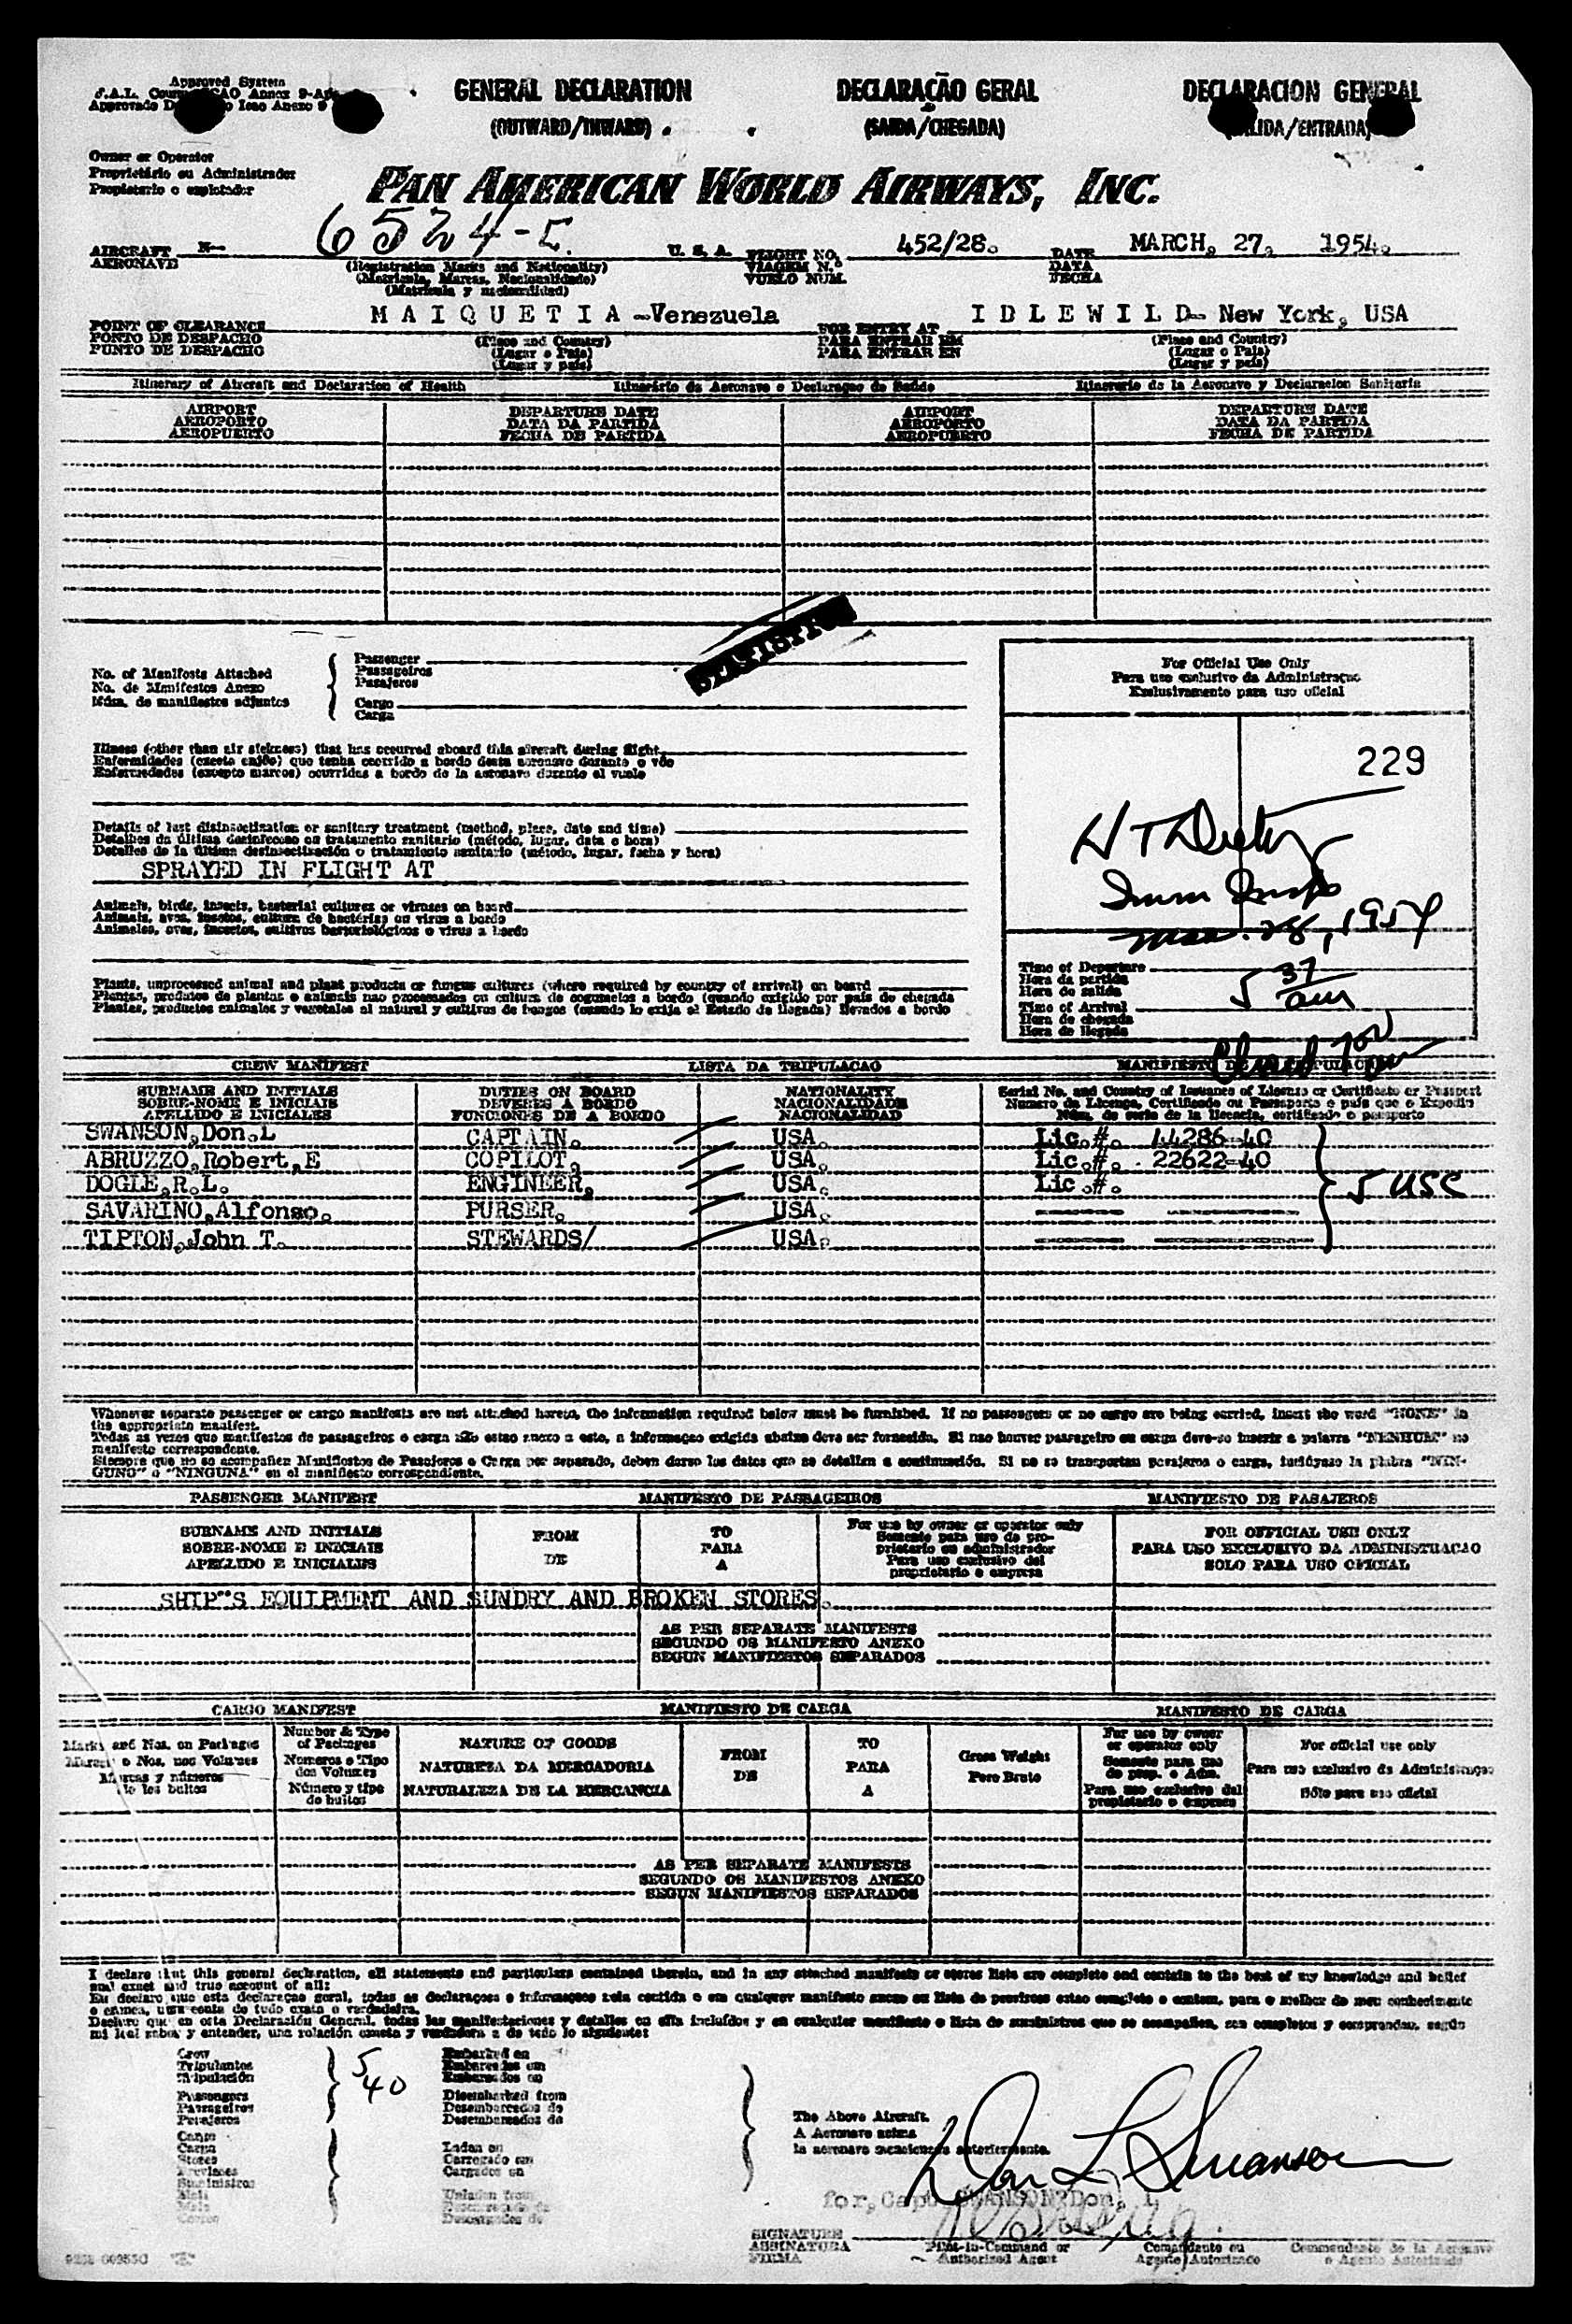 Approved System
GENERAL DECLARATION
(OUTWARD/INWARD)
DECLARAÇÃO GERAL
(SAIDA/CHEGADA)
DECLARACION GENERAL
Owner or Operator
Proprietário ou Administrador
Propietario o explotador
PAN AMERICAN WORLD AIRWAYS, INC.
AIRCRAFT N- 6524-C U. S. A. FLIGHT NO. 452/28. DATE MARCH, 27, 1954.
AERONAVE
(Registration Marks and Nationality)
(Matricula, Marcas, Nacionalidade)
(Matricula y nacionalidad)
VIAGEM N.º
VUELO NUM.
DATA
FECHA
POINT OF CLEARANCE MAIQUETIA -Venezuela FOR ENTRY AT IDLEWILD- New York, USA
PONTO DE DESPACHO
PUNTO DE DESPACHO
(Place and Country)
(Lugar e Pais)
(Lugar y país)
PARA ENTRAR EM
PARA ENTRAR EN
(Place and Country)
(Lugar o Pais)
(Lugar y país)
Itinerary of Aircraft and Declaration of Health
Itinerário da Aeronave e Declaraçao de Saúde
Itinerario de la Aeronave y Declaracion Sanitaria
AIRPORT
AEROPORTO
AEROPUERTO
DEPARTURE DATE
DATA DA PARTIDA
FECHA DE PARTIDA
AIRPORT
AEROPORTO
AEROPUERTO
DEPARTURE DATE
DATA DA PARTIDA
FECHA DE PARTIDA
No. of Manifests Attached
No. de Manifestos Anexo
Núm. de manifiestos adjuntos
Passenger
Passageiros
Pasajeros
Cargo
Carga
For Official Use Only
Para uso exclusivo da Administraçao
Exclusivamente para uso oficial
229
Mar. 28, 1954
Illness (other than air sickness) that has occurred aboard this aircraft during flight
Enfermidades (exceto enjôo) que tenha ocorrido a bordo desta aeronave durante o vôo
Enfermedades (excepto mareos) ocurridas a bordo de la aeronave durante el vuelo
Details of last disinsectization or sanitary treatment (method, place, date and time)
Detalhes da última desinfeccao ou tratamento sanitario (método, lugar, data e hora)
Detalles de la última desinsectización o tratamiento sanitario (método, lugar, fecha y hora)
SPRAYED IN FLIGHT AT
Animals, birds, insects, bacterial cultures or viruses on board
Animais, aves, insetos, cultura de bactérias ou virus a bordo
Animales, aves, insectos, cultivos bacteriológicos o virus a bordo
Plants, unprocessed animal and plant products or fungus cultures (where required by country of arrival) on board
Plantas, produtos de plantas e animais nao processados ou cultura de cogumelos a bordo (quando exigido por país de chegada
Plantas, productos animales y vegetales al natural y cultivos de hongos (cuando lo exija el Estado de llegada) llevados a bordo
Time of Departure
Hora da partida
Hora de salida
5 37 am
Time of Arrival
Hora da chegada
Hora de llegada
CREW MANIFEST
LISTA DA TRIPULACAO
SURNAME AND INITIALS
SOBRE-NOME E INICIAIS
APELLIDO E INICIALES
DUTIES ON BOARD
DEVERES A BORDO
FUNCIONES DE A BORDO
NATIONALITY
NACIONALIDADE
NACIONALIDAD
Serial No. and Country of Issuance of License or Certificate or Passport
Numero da Licença, Certificado ou Passaporte e país que o Expediu
Núm. de serie de la licencia, certificado o pasaporte
SWANSON,Don.L CAPTAIN. USA. Lic.#. 44286-40
ABRUZZO,Robert,E COPILOT. USA. Lic.#. 22622-40
DOGLE,R.L. ENGINEER. USA. Lic.#. 5 USC
SAVARINO,Alfonso. PURSER. USA.
TIPTON,John T. STEWARDS/ USA.
Whenever separate passenger or cargo manifests are not attached hereto, the information required below must be furnished. If no passengers or no cargo are being carried, insert the word "NONE" in
the appropriate manifest.
Todas as vezes que manifestos de passageiros e carga não estao anexo a este, a informaçao exigida abaixo deve ser fornecida. Si nao houver passageiro ou carga deve-se inserir a palavra "NENHUM" no
manifesto correspondente.
Siempre que no se acompañen Manifiestos de Pasajeros o Carga por separado, deben darse los datos que se detallan a continuación. Si no se transportan pasajeros o carga, inclúyase la palabra "NIN-
GUNO" o "NINGUNA" en el manifiesto correspondiente.
PASSENGER MANIFEST
MANIFESTO DE PASSAGEIROS
MANIFIESTO DE PASAJEROS
SURNAME AND INITIALS
SOBRE-NOME E INICIAIS
APELLIDO E INICIALES
FROM
DE
TO
PARA
A
For use by owner or operator only
Somente para uso do pro-
prietario ou administrador
Para uso exclusivo del
proprietario o empresa
FOR OFFICIAL USE ONLY
PARA USO EXCLUSIVO DA ADMINISTRACAO
SOLO PARA USO OFICIAL
SHIP"S EQUIPMENT AND SUNDRY AND BROKEN STORES.
AS PER SEPARATE MANIFESTS
SEGUNDO OS MANIFESTO ANEXO
SEGUN MANIFIESTOS SEPARADOS
CARGO MANIFEST
MANIFIESTO DE CARGA
MANIFESTO DE CARGA
Marks and Nos. on Packages
Marcas o Nos. nos Volumes
Marcas y números
de los bultos
Number & Type
of Packages
Numeros e Tipo
dos Volumes
Número y tipo
de bultos
NATURE OF GOODS
NATUREZA DA MERCADORIA
NATURALEZA DE LA MERCANCIA
FROM
DE
TO
PARA
A
Gross Weight
Pero Bruto
For use by owner
or operator only
Somente para uso
de prop. o Adm.
Para uso exclusivo del
propietario o empresa
For official use only
Para uso exclusivo da Administraçao
Sólo para uso oficial
AS PER SEPARATE MANIFESTS
SEGUNDO OS MANIFESTOS ANEXO
SEGUN MANIFIESTOS SEPARADOS
I declare that this general declaration, all statements and particulars contained therein, and in any attached manifests or stores lists are complete and contain to the best of my knowledge and belief
and exact and true account of all:
Crew
Tripulantes
Tripulación
5
Passengers
Passageiros
Pasajeros
40
Embarked on
Disembarked from
Desembarcados de
Desembarcados de
Cargo
Carga
Stores
Laden on
Carregado em
Cargados en
The Above Aircraft.
A Aeronave acima
la aeronave mencionada anteriormente.
Don L Swanson
for, Capt. SWANSON, Don, L
SIGNATURE
ASSINATURA
FIRMA
Pilot-in-Command or
Authorized Agent
Comandante ou
Agente Autorizado
Commandante de la Aeronave
o Agente Autorizado